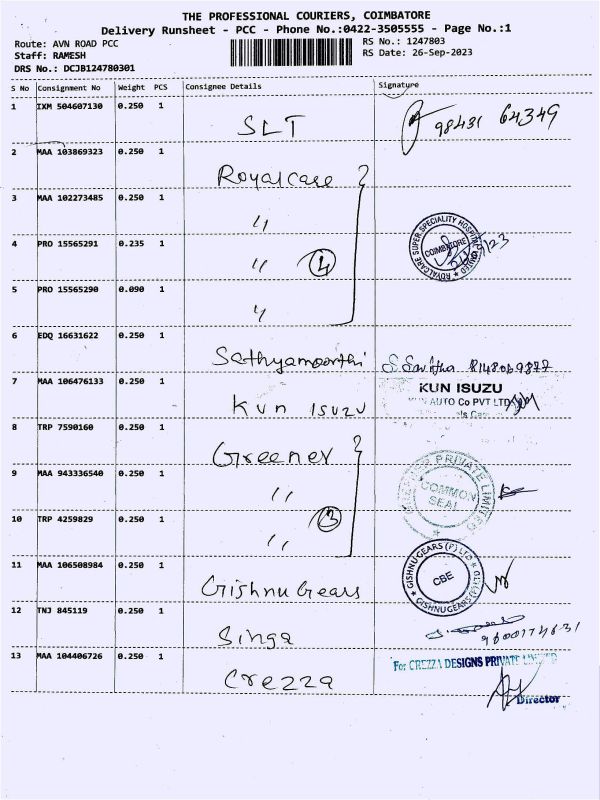 THE PROFESSIONAL COURIERS, COIMBATORE
Delivery Runsheet - PCC - Phone No.:0422-3505555 - Page No.:1
Route: AVN ROAD PCC
Staff: RAMESH
DRS No.: DCJB124780301
RS No.: 1247803
RS Date: 26-Sep-2023
S No Consignment No Weight PCS Consignee Details Signature
1 IXM 504607130 0.250 1 SLT 98431 64349
2 MAA 103869323 0.250 1 Royalcare
3 MAA 102273485 0.250 1 〃
4 PRO 15565291 0.235 1 〃 4
ROYALCARE SUPER SPECIALITY HOSPITAL LIMITED
COIMBATORE
5 PRO 15565290 0.090 1 〃
6 EDQ 16631622 0.250 1 Sathyamoorthi S. Savitha 8148069877
7 MAA 106476133 0.250 1 Kun ISUZU
KUN ISUZU
AUTO Co PVT LTD
8 TRP 7590160 0.250 1 Greener
9 MAA 943336540 0.250 1 〃
PRIVATE LIMITED
COMMON
SEAL
10 TRP 4259829 0.250 1 〃 3
11 MAA 106508984 0.250 1 Gishnu Gears
GISHNU GEARS (P) LTD
CBE
12 TNJ 845119 0.250 1 Singa
13 MAA 104406726 0.250 1 Crezza
For CREZZA DESIGNS PRIVATE LIMITED
Director